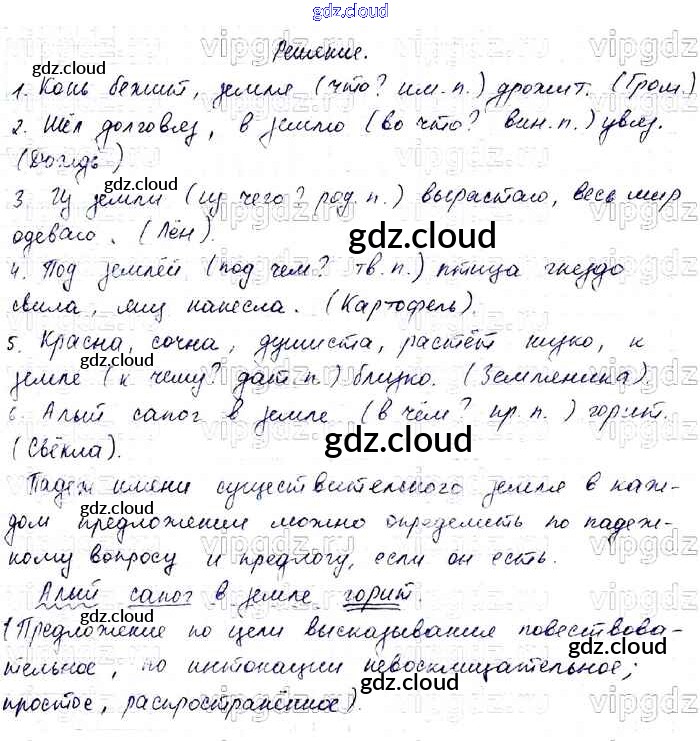 gdz.cloud
Решение.
1. Конь бежит, земля (что? им. п.) дрожит. (Гром.)
2. Шёл долговяз, в землю (во что? вин. п.) увяз.
(Дождь)
3. Из земли (из чего? род. п.) вырастаю, весь мир
одеваю. (Лён).
4. Под землёй (под чем? тв. п.) птица гнездо
свила, яиц нанесла. (Картофель).
5. Красна, сочна, душиста, растёт низко, к
земле (к чему? дат. п.) близко. (Земляника).
6. Алый сапог в земле (в чём? пр. п.) горит.
(Свёкла).
Падеж имени существительного земля в каж-
дом предложении можно определить по падеж-
ному вопросу и предлогу, если он есть.
Алый сапог в земле горит.
(Предложение по цели высказывания повествова-
тельное, по интонации невосклицательное;
простое, распространённое).